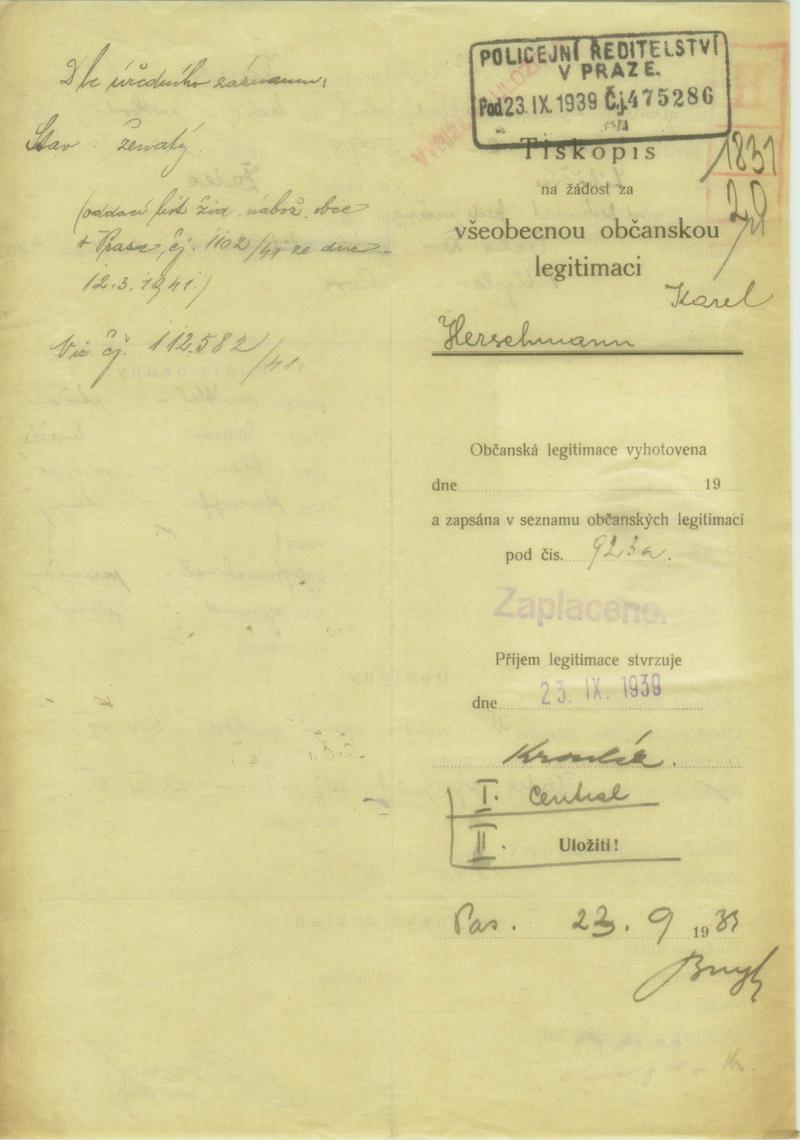 Dle úředního záznamu:
Stav: ženatý.
(oddací list žid. nábož. obce
v Praze, čj. 1102/41 ze dne
12.3.1941.)
Viz čj. 112.582/41.
POLICEJNÍ ŘEDITELSTVÍ
V PRAZE.
Pod 23.IX.1939 Č.j. 475286
Tiskopis
1831
20
na žádost za
všeobecnou občanskou
legitimaci
Karel
Herschmann
Občanská legitimace vyhotovena
dne 19
a zapsána v seznamu občanských legitimací
pod čís. 923a.
Zaplaceno.
Příjem legitimace stvrzuje
dne 23. IX. 1939
I. Central
II. Uložiti!
Pas. 23. 9 1939